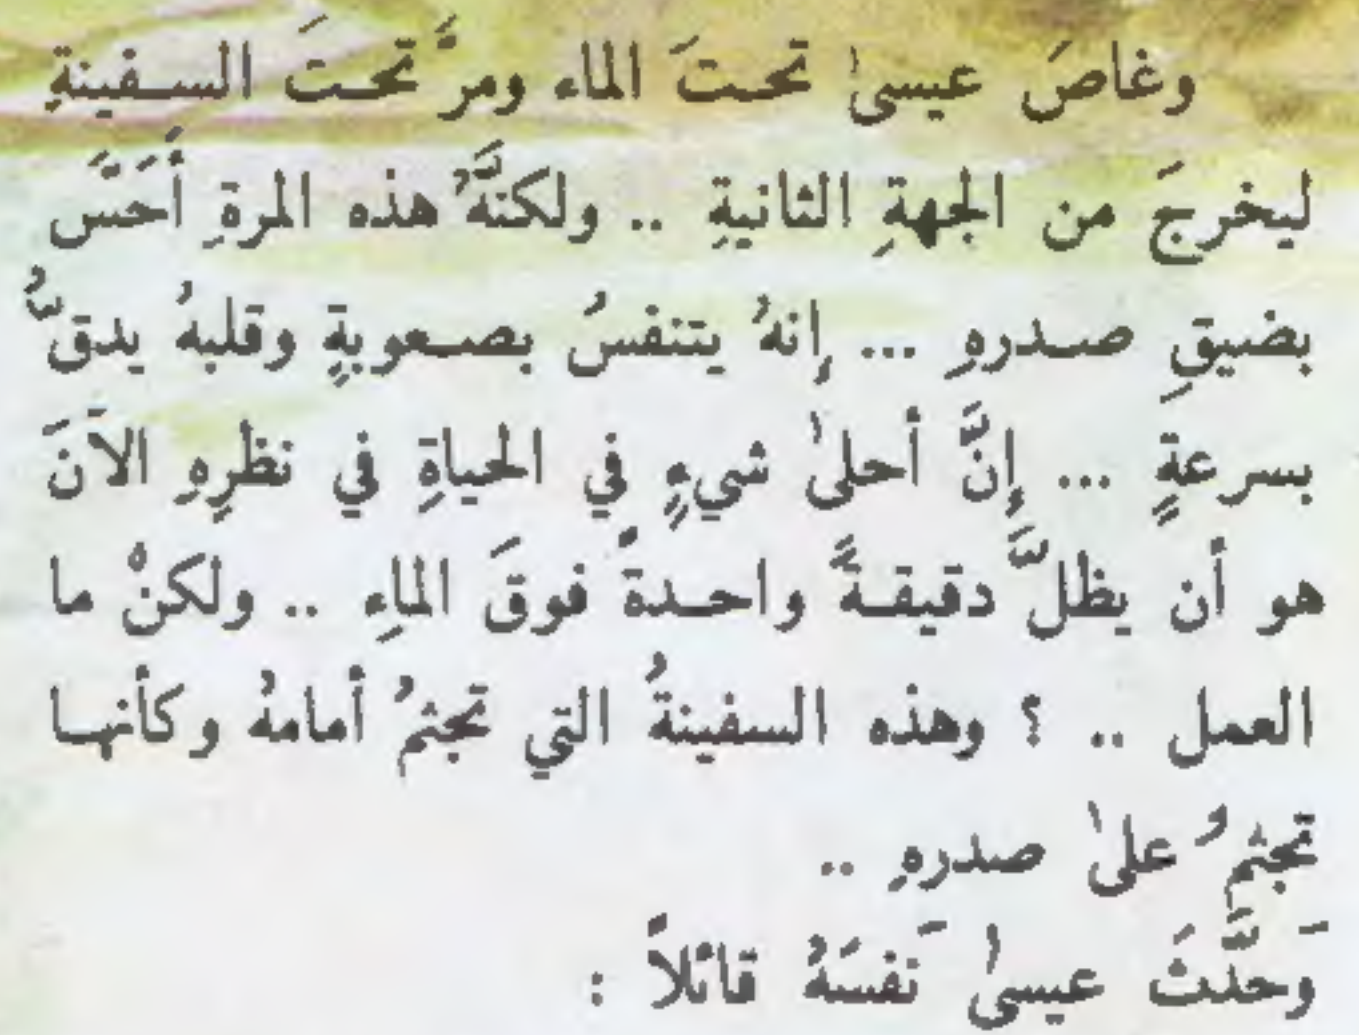 وغاصَ عيسىٰ تحـتَ الماء ومرَّ تحـتَ السـفينةِ
ليخرجَ من الجهةِ الثانيةِ .. ولكنَّهُ هذه المرةِ أَحَسَّ
بضيقِ صـدرهِ ... إنهُ يتنفسُ بصـعوبةٍ وقلبهُ يدقُّ
بسرعةٍ ... إنَّ أحلىٰ شيءٍ في الحياةِ في نظرِهِ الآنَ
هو أن يظلَّ دقيقـةً واحـدةً فوقَ الماءِ .. ولكنْ ما
العمل .. ؟ وهذه السفينةُ التي تجثمُ أمامهُ وكأنهـا
تجثمُ علىٰ صدرهِ ..
وَحدَّثَ عيسىٰ نَفسَهُ قائلاً :